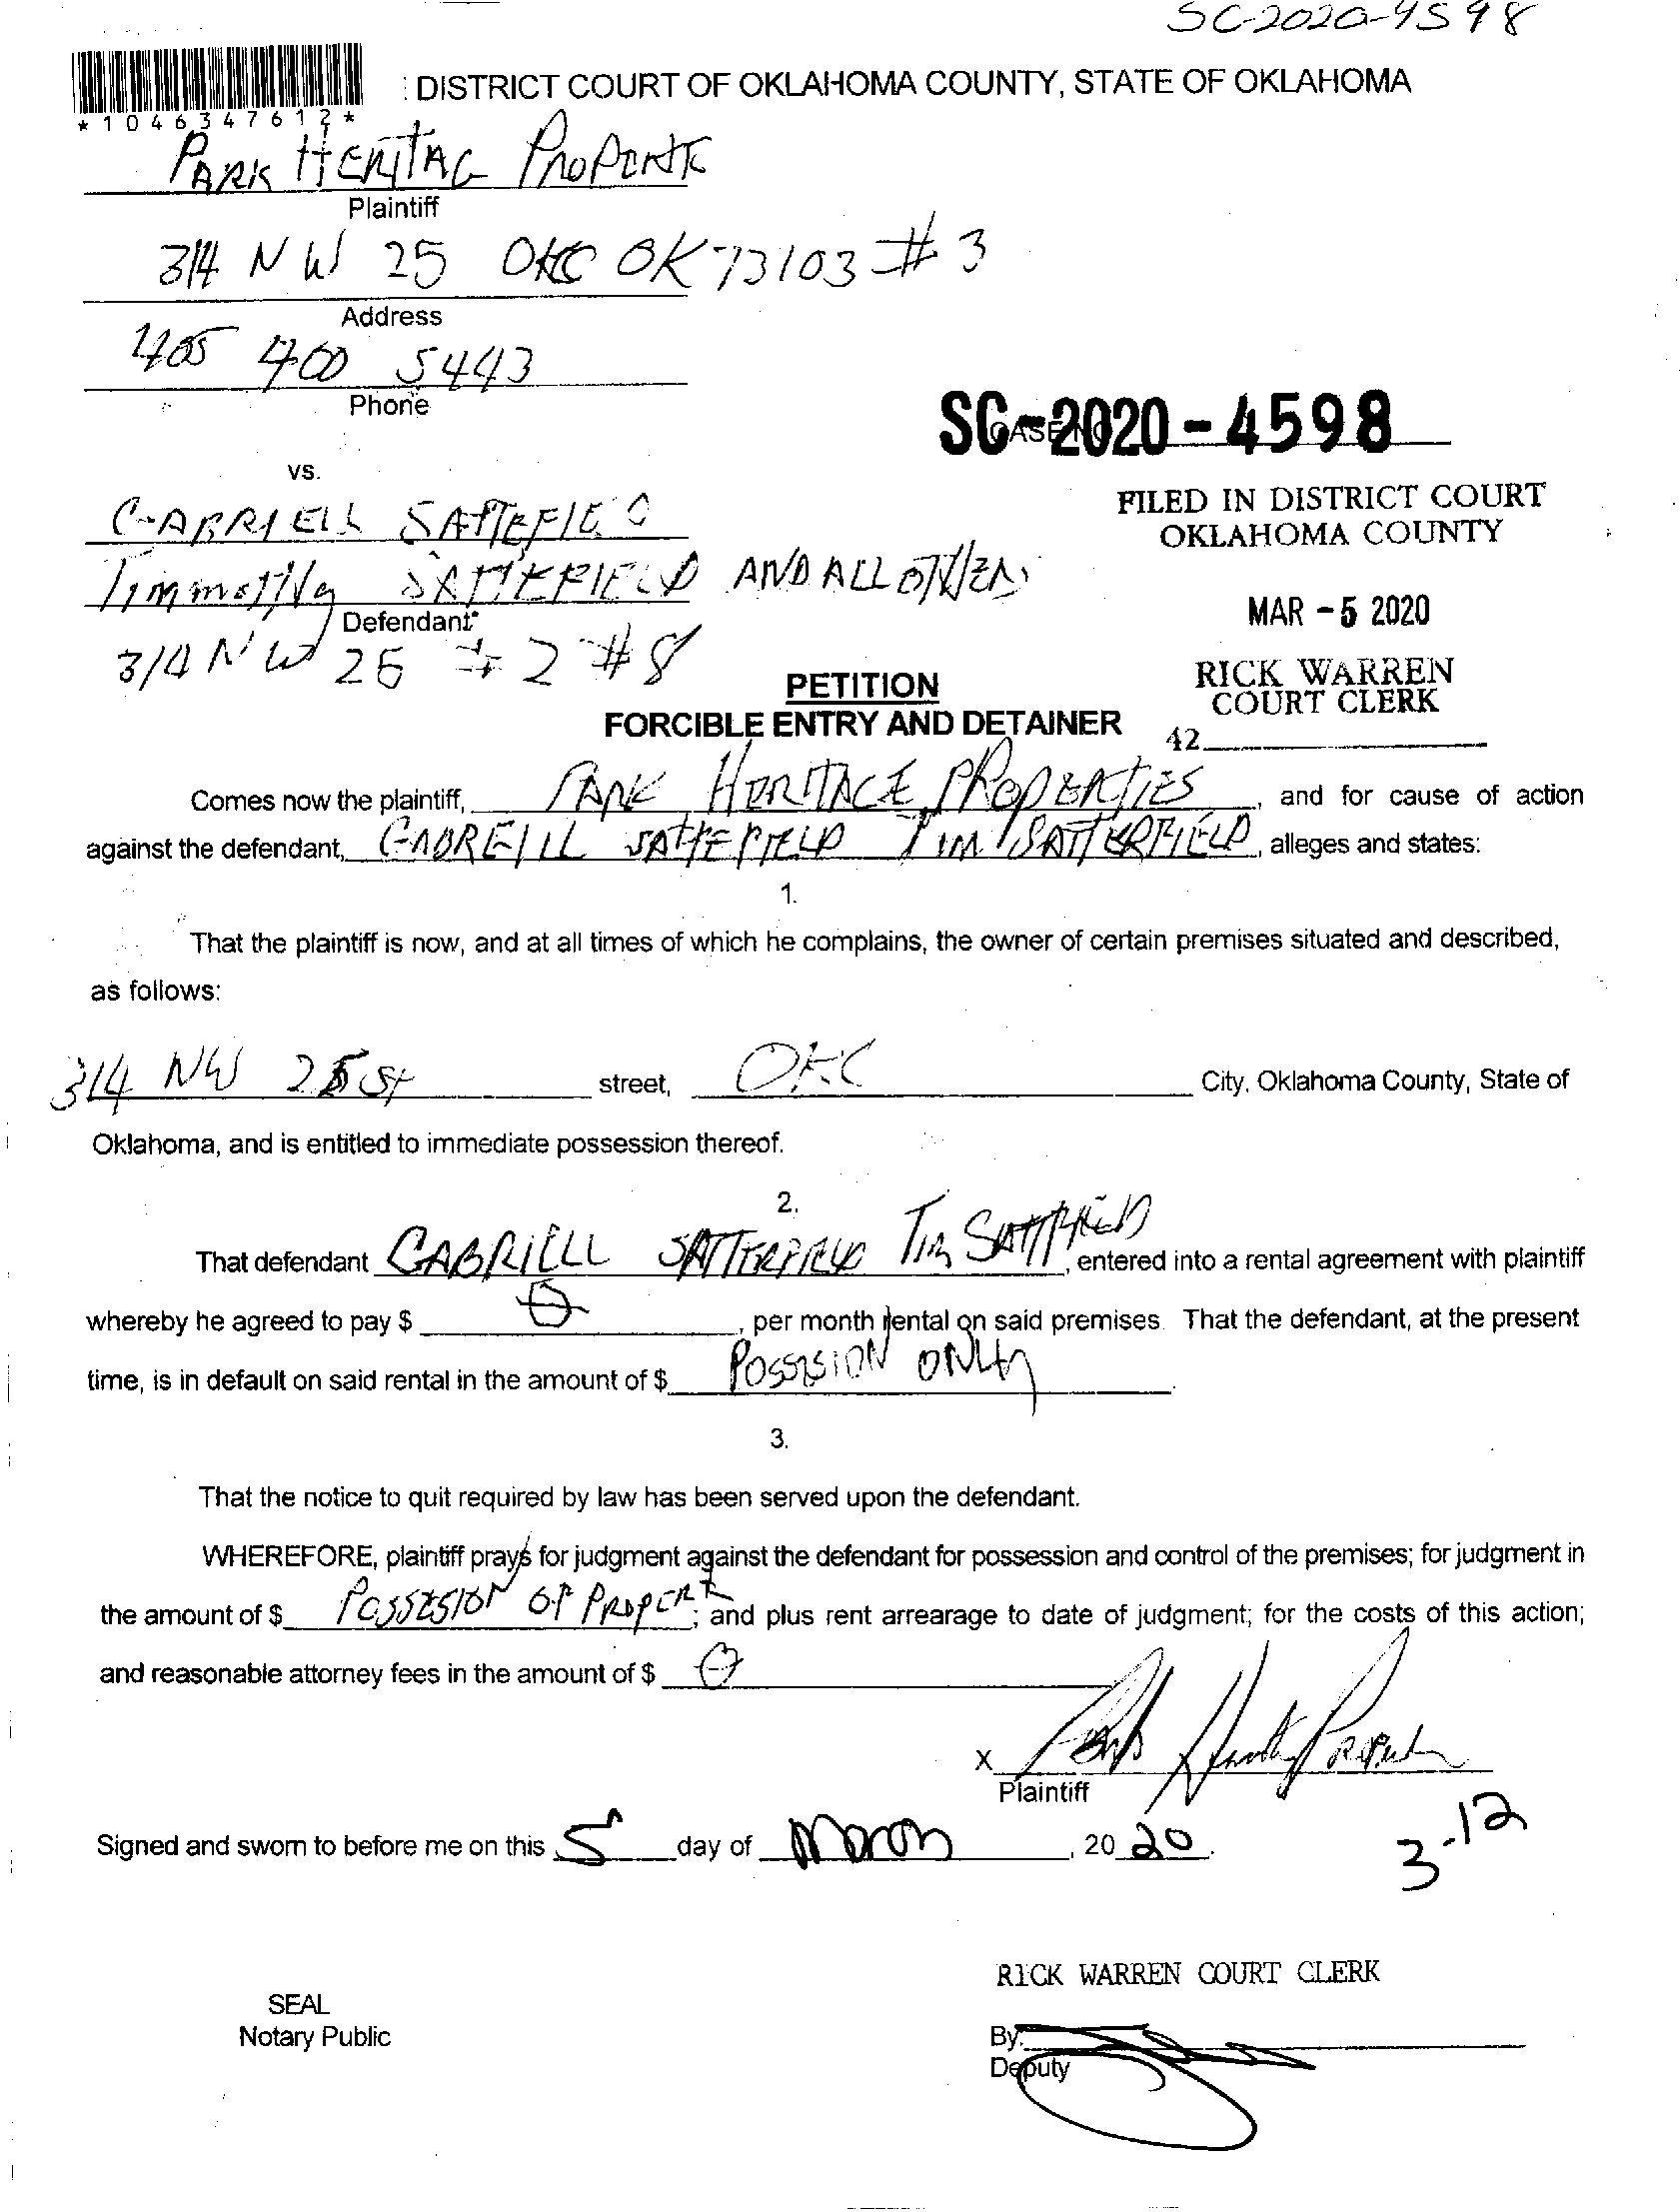 SC-2020-4598
: DISTRICT COURT OF OKLAHOMA COUNTY, STATE OF OKLAHOMA
* 1 0 4 6 3 4 7 6 1 2 *
PARK HERITAG PROPERTE
Plaintiff
314 NW 25 OKC OK 73103 # 3
Address
405 400 5443
Phone
SC-2020-4598
vs.
FILED IN DISTRICT COURT
OKLAHOMA COUNTY
GABRIELL SATTEFIE
SATTERFIELD AND ALL OTHERS
MAR -5 2020
Defendant
314 NW 25 # 2 # 8
RICK WARREN
COURT CLERK
PETITION
FORCIBLE ENTRY AND DETAINER
42
Comes now the plaintiff, PARK HERITAGE PROPERTIES, and for cause of action
against the defendant, GABREILL SATTEFIELD TIM SATTERFIELD, alleges and states:
1.
That the plaintiff is now, and at all times of which he complains, the owner of certain premises situated and described,
as follows:
314 NW 25 St street, OKC City, Oklahoma County, State of
Oklahoma, and is entitled to immediate possession thereof.
2.
That defendant GABRIELL SATTERFIELD TIM, entered into a rental agreement with plaintiff
whereby he agreed to pay $ 0, per month rental on said premises. That the defendant, at the present
time, is in default on said rental in the amount of $ POSSESION ONLY.
3.
That the notice to quit required by law has been served upon the defendant.
WHEREFORE, plaintiff prays for judgment against the defendant for possession and control of the premises; for judgment in
the amount of $ POSSESION OF PROPERT; and plus rent arrearage to date of judgment; for the costs of this action;
and reasonable attorney fees in the amount of $ 0
X
Plaintiff
Signed and sworn to before me on this 5 day of March, 20 20.
3-12
RICK WARREN COURT CLERK
SEAL
Notary Public
By:
Deputy